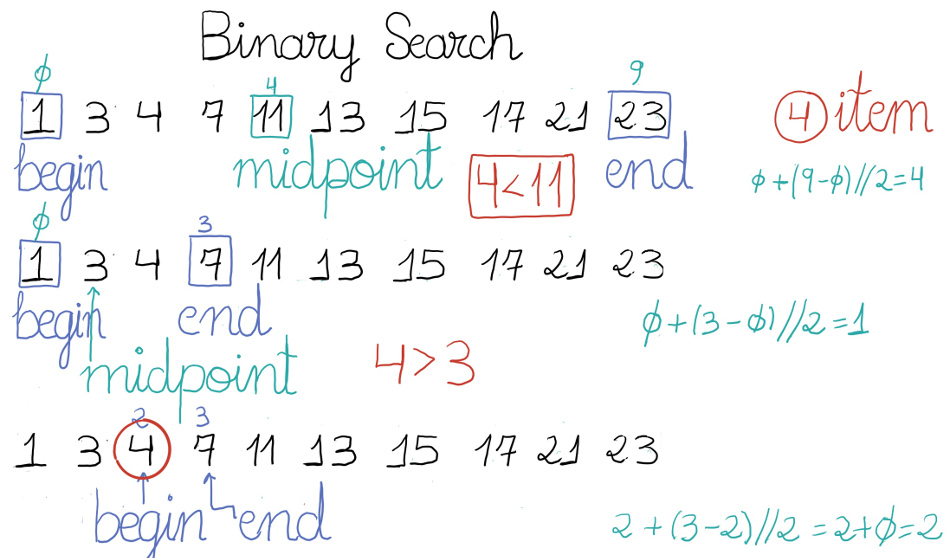 Binary Search
0 4 9
1 3 4 7 11 13 15 17 21 23 4 item
begin midpoint 4<11 end 0+(9-0)//2=4
0 3
1 3 4 7 11 13 15 17 21 23
begin end 0+(3-0)//2=1
midpoint 4>3
2 3
1 3 4 7 11 13 15 17 21 23
begin end 2+(3-2)//2=2+0=2